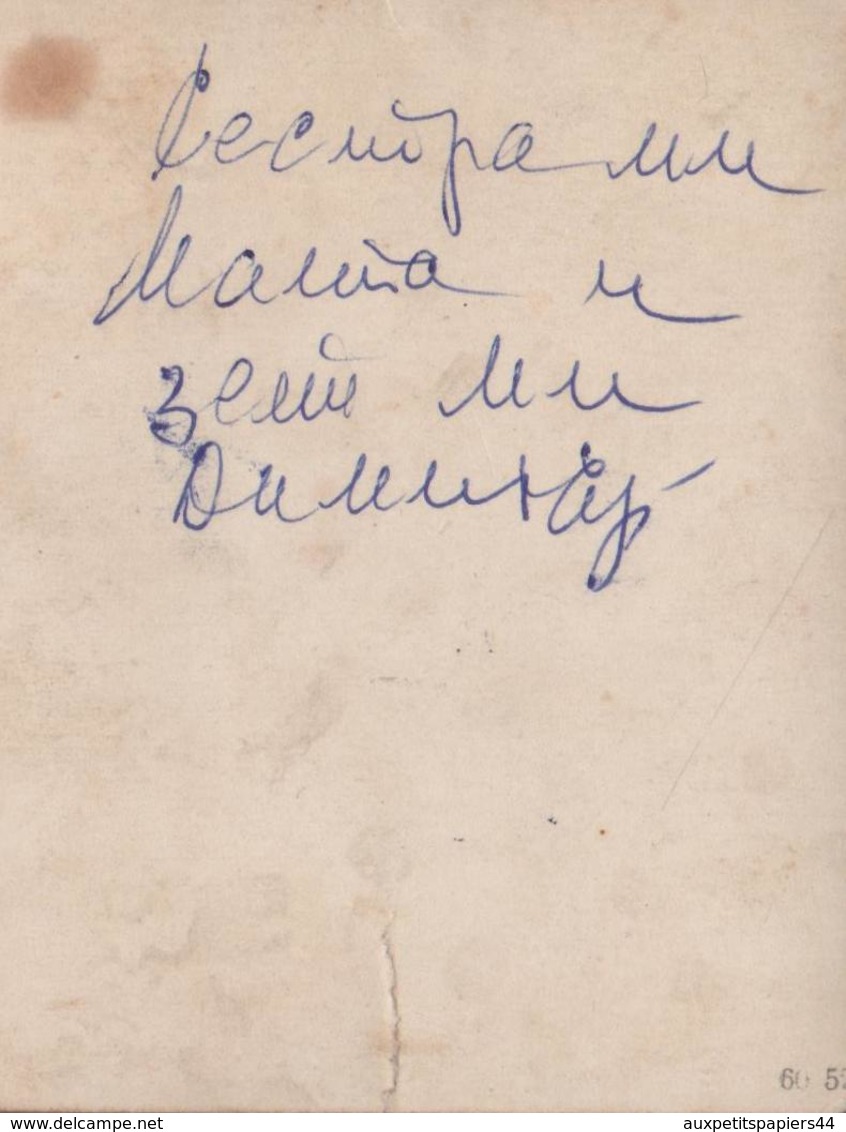 Сестра ми
и
зет ми
Димитър
60 52
delcampe.net
auxpetitspapiers44